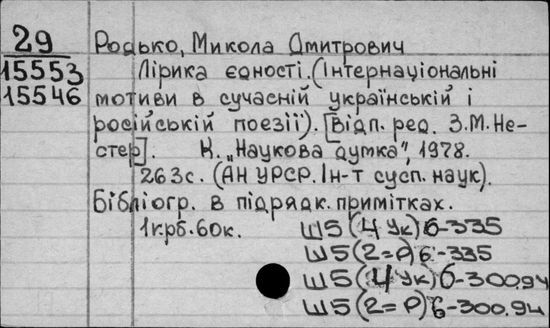 29
15553
15546
Родько, Микола Дмитрович
Лірика єдності. (Інтернаціональні
мотиви в сучасній українській і
російській поезії). [Відп. ред. З.М. Не-
стер]. К. „Наукова думка", 1978.
263с. (АН УРСР. Ін-т сусп. наук).
Бібліогр. в підрядк. примітках.
1крб. 60к.
Ш5(4Ук)6-335
Ш5(2=Р)6-335
Ш5(4Ук)6-300.94
Ш5(2=Р)6-300.94